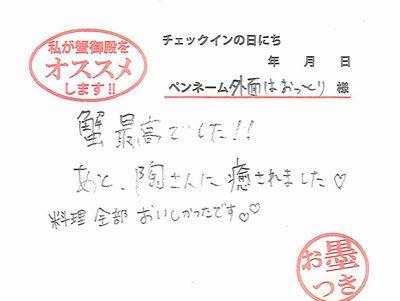 私が蟹御殿を
オススメ
します!!
チェックインの日にち
年 月 日
ペンネーム 外面はおっとり 様
蟹最高でした!!
あと、陶さんに癒されました♡
料理全部おいしかったです♡♡
お墨
つき